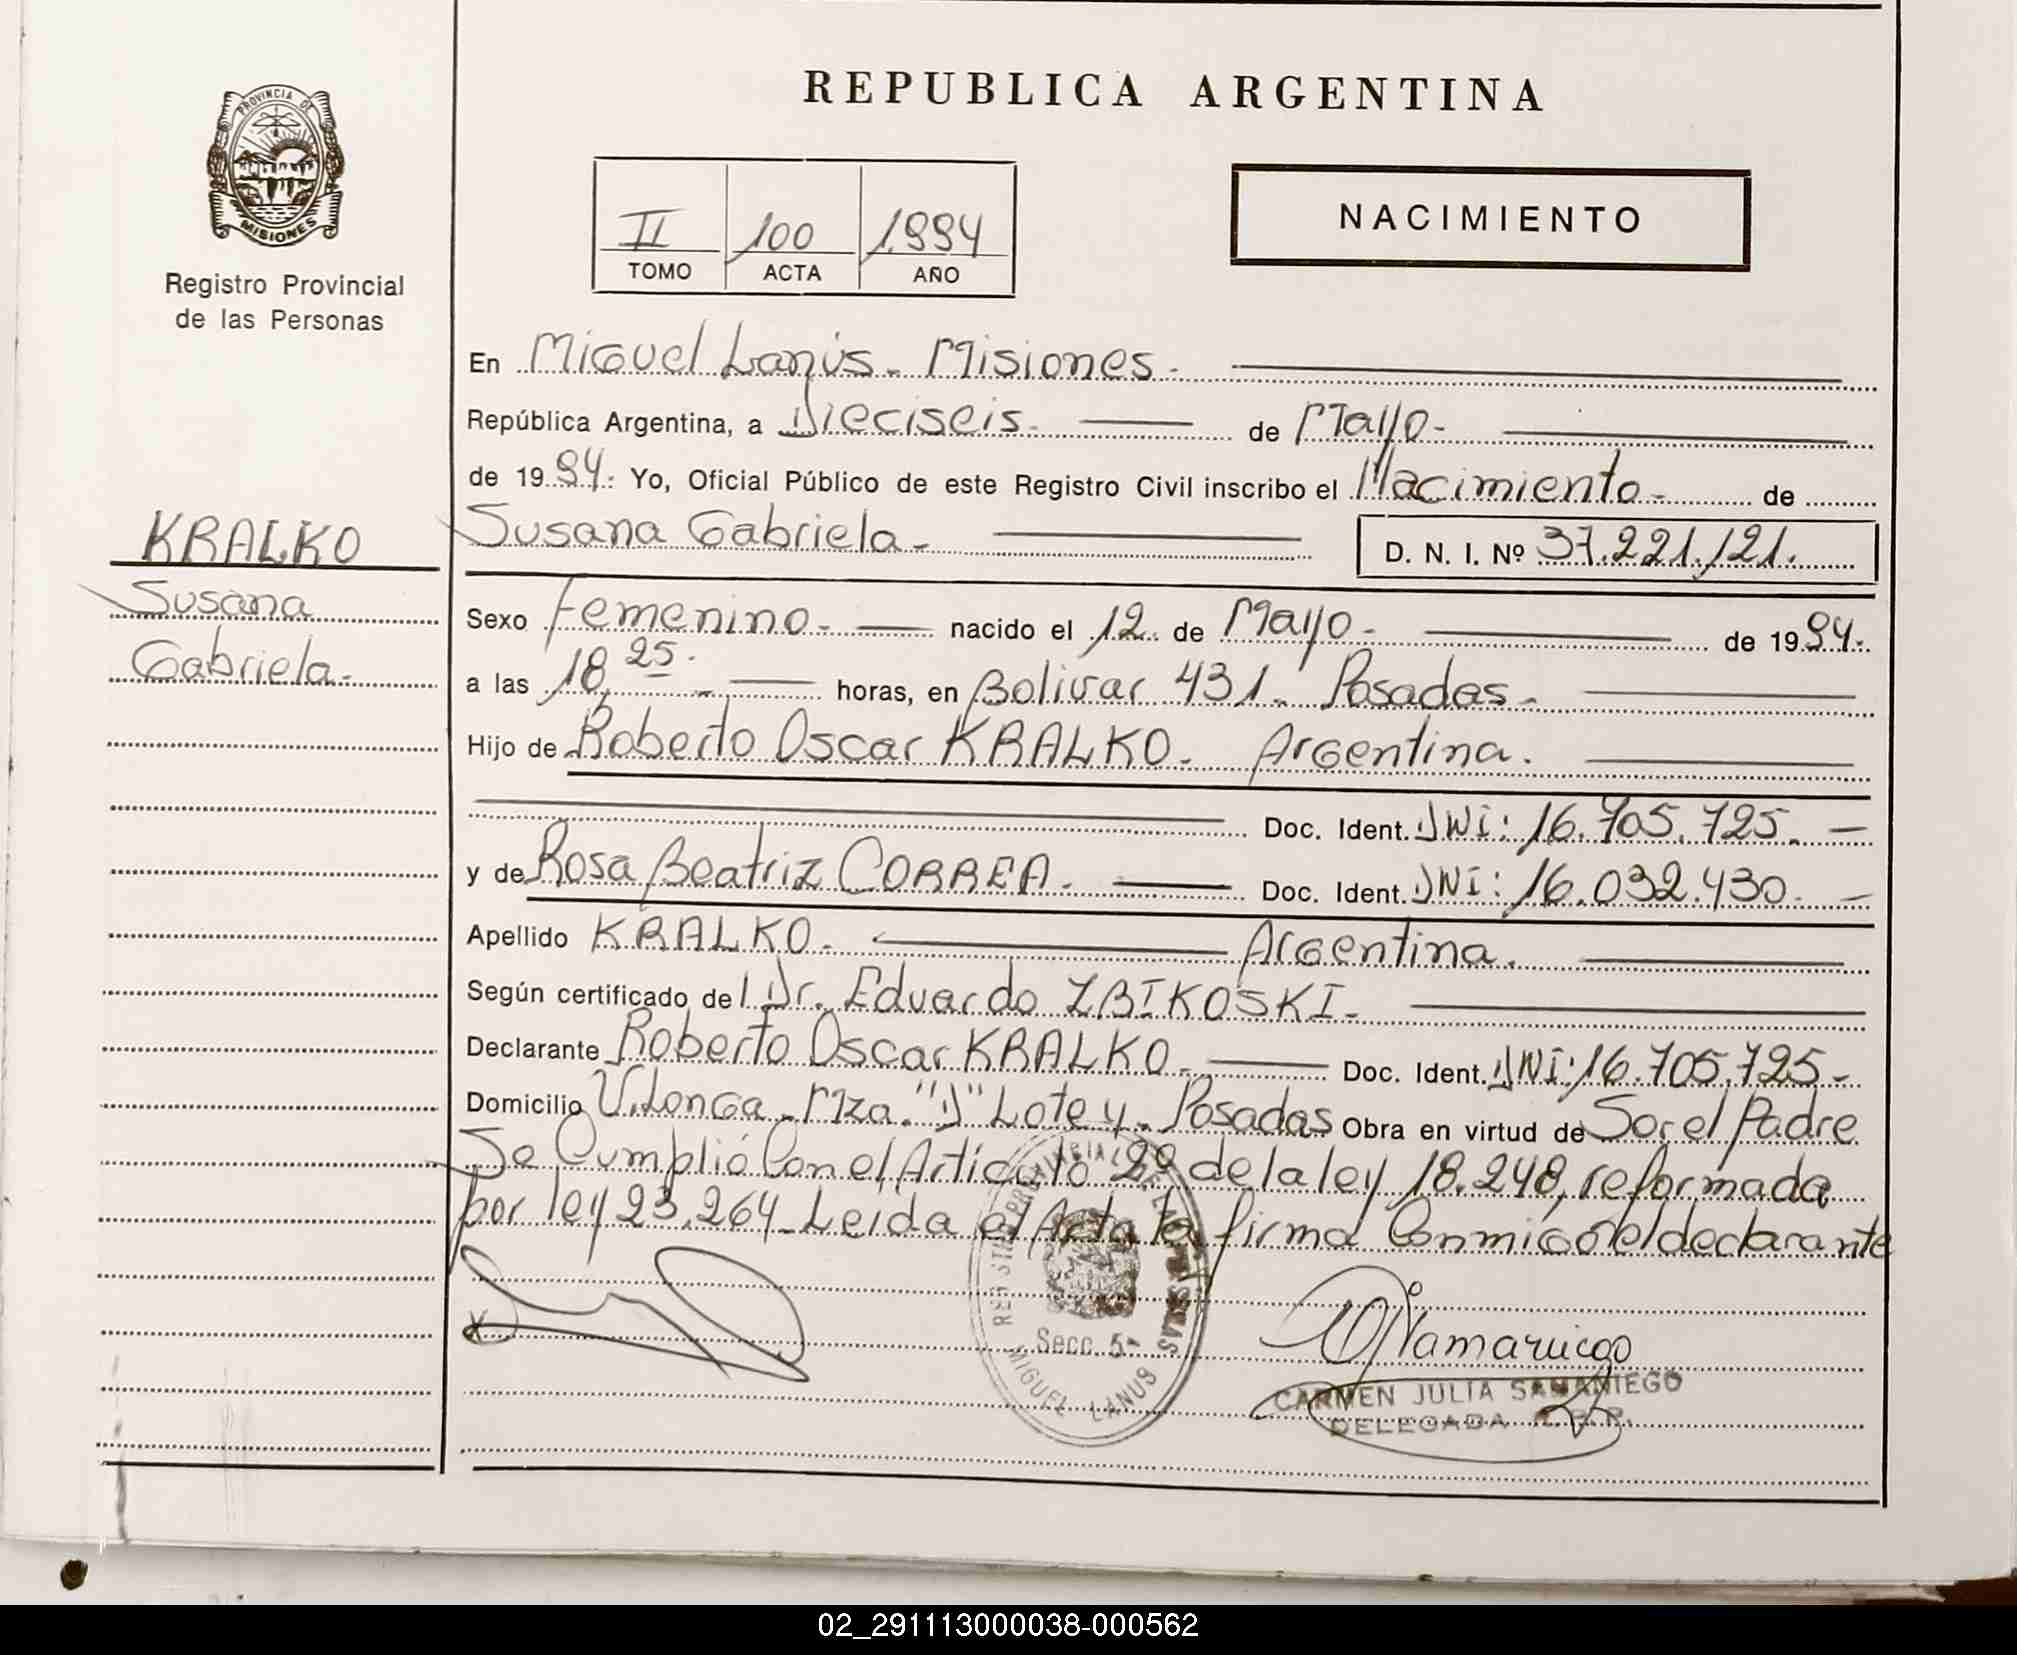 PROVINCIA DE
MISIONES
Registro Provincial
de las Personas
KRALKO
Susana
Gabriela.-
REPUBLICA ARGENTINA
II 100 1.994
TOMO ACTA AÑO
NACIMIENTO
En Miguel Lanús.- Misiones.-
República Argentina, a Dieciseis.- de Mayo.-
de 19 94.- Yo, Oficial Público de este Registro Civil inscribo el Nacimiento.- de
Susana Gabriela.- D. N. I. Nº 37.221.121.
Sexo Femenino.- nacido el 12 de Mayo.- de 19 94.-
a las 18,25.- horas, en Bolivar 431.- Posadas.-
Hijo de Roberto Oscar KRALKO.- Argentina.
Doc. Ident. DNI: 16.705.725.-
y de Rosa Beatriz CORREA.- Doc. Ident. DNI: 16.032.430.-
Apellido KRALKO.- Argentina.
Según certificado del Dr. Eduardo ZBIKOSKI.-
Declarante Roberto Oscar KRALKO.- Doc. Ident. DNI: 16.705.725.-
Domicilio V.Longa.- Mza. "D" Lote y.- Posadas Obra en virtud de Ser el Padre
Se Cumplió Con el Artículo 2º de la ley 18.248, reformada
por ley 23.264.- Leida el Acta la firma Conmigo el declarante
X
Secc. 5ª
MIGUEL LANUS
CARMEN JULIA SAMANIEGO
DELEGADA
02_291113000038-000562